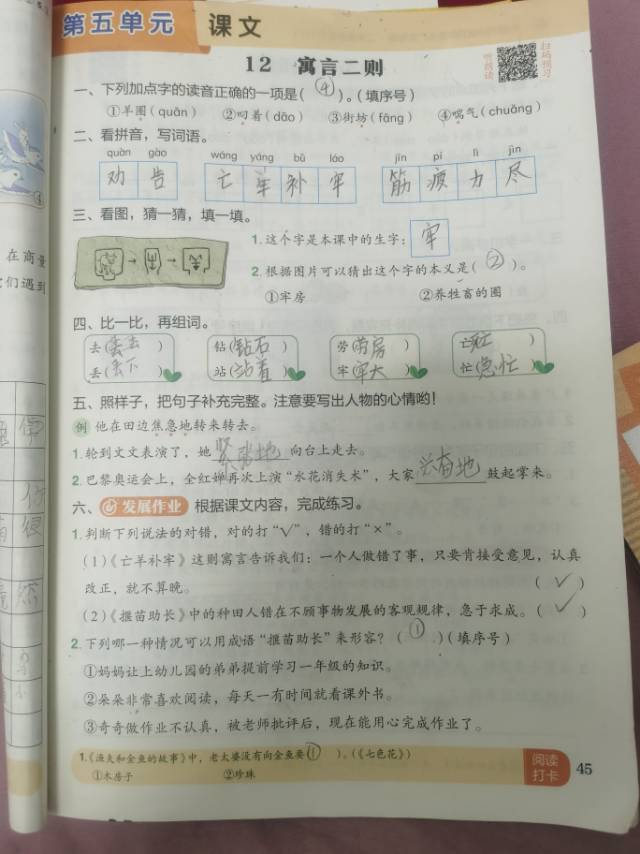 第五单元 课文
听朗读
扫码预习
12 寓言二则
一、下列加点字的读音正确的一项是(④)。(填序号)
①羊圈(quān) ②叼着(dāo) ③街坊(fāng) ④喘气(chuǎng)
二、看拼音，写词语。
quàn gào wáng yáng bǔ láo jīn pí lì jìn
劝告 亡羊补牢 筋疲力尽
三、看图，猜一猜，填一填。
1.这个字是本课中的生字：牢
2.根据图片可以猜出这个字的本义是(②)。
①牢房 ②养牲畜的圈
四、比一比，再组词。
去( ) 钻(钻石) 劳( ) 亡( )
丢(丢下) 站(站着) 牢( ) 忙(急忙)
五、照样子，把句子补充完整。注意要写出人物的心情哟！
例 他在田边焦急地转来转去。
1.轮到文文表演了，她紧张地向台上走去。
2.巴黎奥运会上，全红婵再次上演“水花消失术”，大家兴奋地鼓起掌来。
六、发展作业 根据课文内容，完成练习。
1.判断下列说法的对错，对的打“√”，错的打“×”。
(1)《亡羊补牢》这则寓言告诉我们：一个人做错了事，只要肯接受意见，认真
改正，就不算晚。 (√)
(2)《揠苗助长》中的种田人错在不顾事物发展的客观规律，急于求成。(√)
2.下列哪一种情况可以用成语“揠苗助长”来形容？(①)(填序号)
①妈妈让上幼儿园的弟弟提前学习一年级的知识。
②朵朵非常喜欢阅读，每天一有时间就看课外书。
③奇奇做作业不认真，被老师批评后，现在能用心完成作业了。
1.《渔夫和金鱼的故事》中，老太婆没有向金鱼要(①)。(《七色花》)
①木房子 ②珍珠
阅读
打卡
45
④
在商量
们遇到